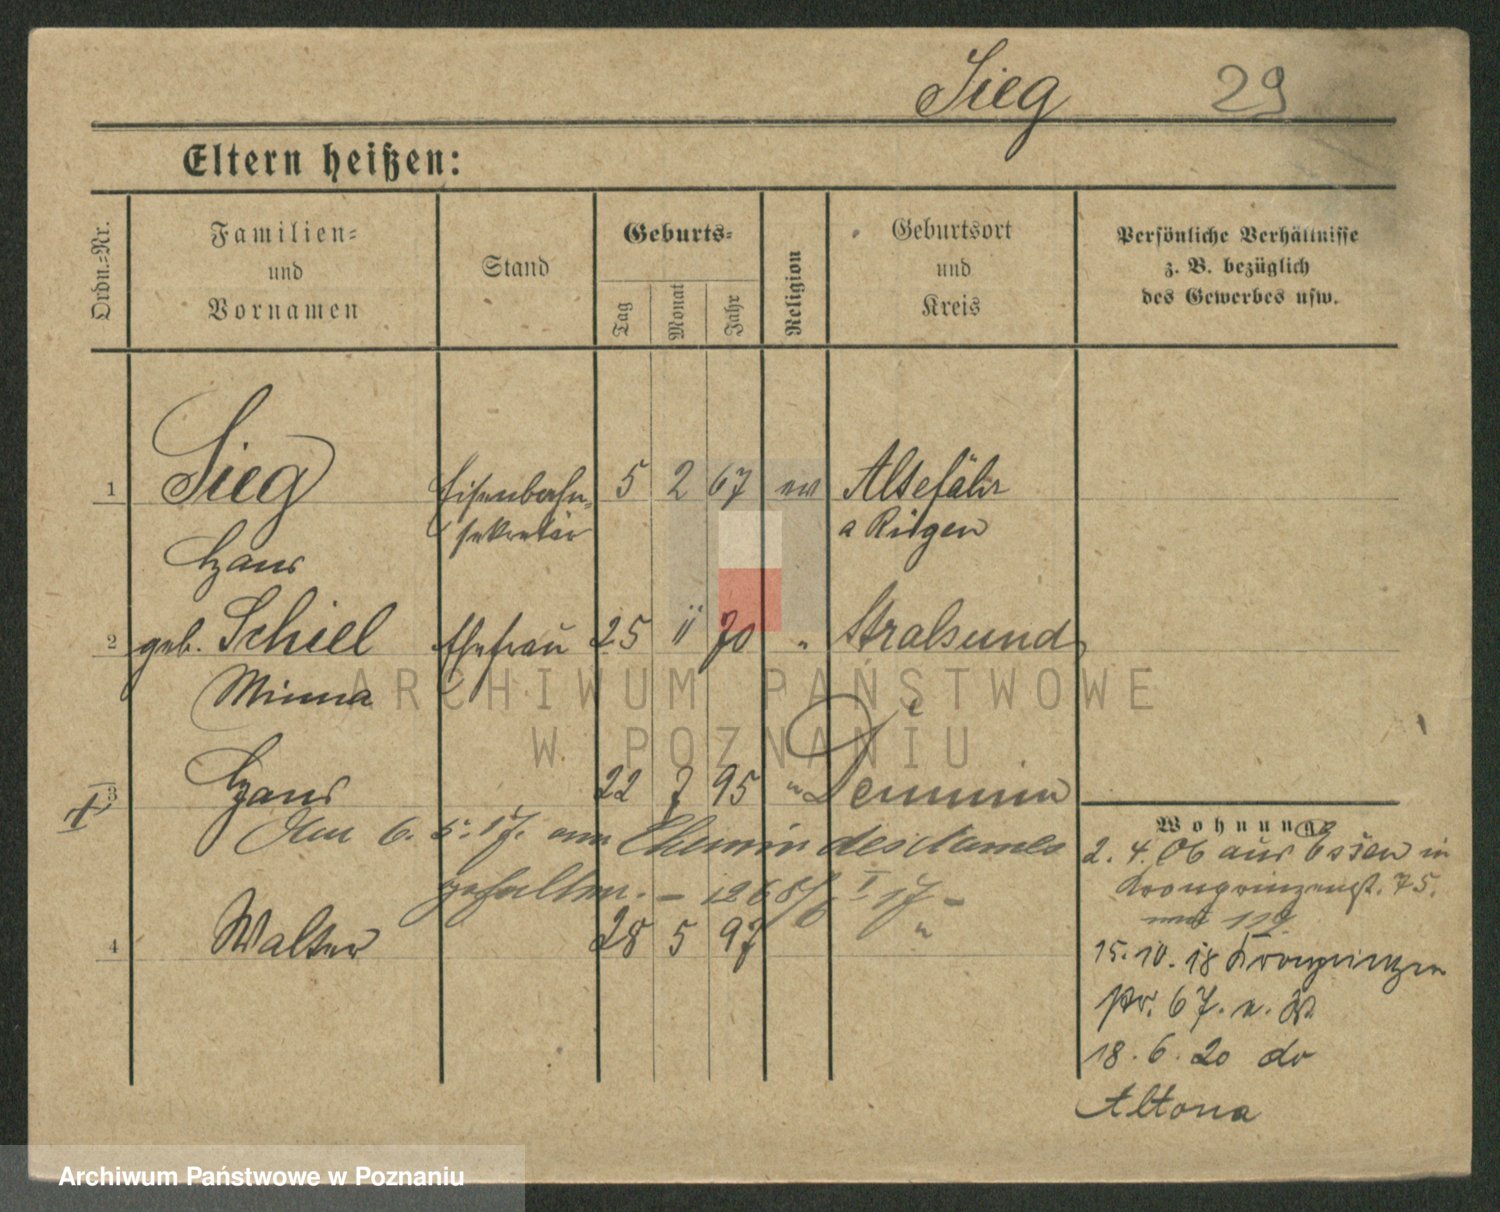 Sieg 29
Eltern heißen:
Ordn.=Nr.
Familien=
und
Vornamen
Stand
Geburts=
Tag
Monat
Jahr
Religion
Geburtsort
und
Kreis
Persönliche Verhältnisse
z. B. bezüglich
des Gewerbes usw.
1 Sieg Eisenbahn= 5 2 67 ev Altefähr
sekretär a Rügen
Hans
2 geb. Schiel Ehefrau 25 11 70 " Stralsund
Minna
3 Hans 22 7 95 " Demmin
Am 6. 5. 17. am Chemin des Dames
gefallen. –
4 Walter 28 5 97 "
Wohnung
2. 4. 06 aus Essen in
Kronprinzenst. 75.
15. 10. 18 Kronprinzen
67.
18. 6. 20
Altona
ARCHIWUM PAŃSTWOWE
W POZNANIU
Archiwum Państwowe w Poznaniu